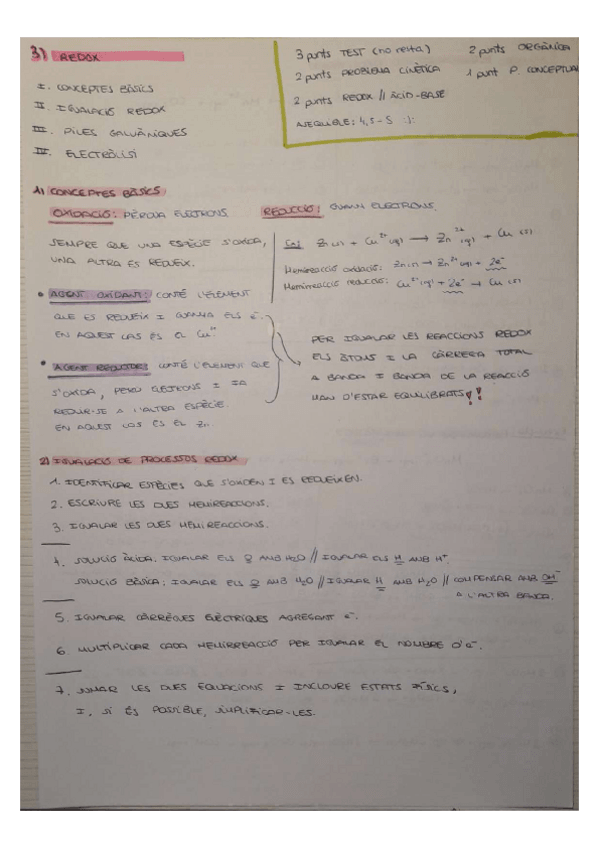 3) REDOX
I. CONCEPTES BÀSICS
II. IGUALACIÓ REDOX
III. PILES GALVÀNIQUES
IIII. ELECTRÒLISI
3 punts TEST (no resta) 2 punts ORGÀNICA
2 punts PROBLEMA CINÈTICA 1 punt P. CONCEPTUAL
2 punts REDOX // ÀCID-BASE
ASEQUIBLE: 4,5-5 :):
1) CONCEPTES BÀSICS:
OXIDACIÓ: PÈRDUA ELECTRONS. REDUCCIÓ: GUANY ELECTRONS.
SEMPRE QUE UNA ESPÈCIE S'OXIDA,
UNA ALTRA ES REDUEIX.
Ex) Zn(s) + Cu²⁺(aq) → Zn²⁺(aq) + Cu (s)
Hemireacció oxidació: Zn(s) → Zn²⁺(aq) + 2e⁻
Hemireacció reducció: Cu²⁺(aq) + 2e⁻ → Cu (s)
• AGENT OXIDANT: CONTÉ L'ELEMENT
QUE ES REDUEIX I GUANYA ELS e⁻.
EN AQUEST CAS ÉS EL Cu²⁺
• AGENT REDUCTOR: CONTÉ L'ELEMENT QUE
S'OXIDA, PERD ELECTRONS I FA
REDUIR-SE A L'ALTRA ESPÈCIE.
EN AQUEST CAS ÉS EL Zn.
PER IGUALAR LES REACCIONS REDOX
ELS ÀTOMS I LA CÀRREGA TOTAL
A BANDA I BANDA DE LA REACCIÓ
HAN D'ESTAR EQUILIBRATS!!
2) IGUALACIÓ DE PROCESSOS REDOX
1. IDENTIFICAR ESPÈCIES QUE S'OXIDEN I ES REDUEIXEN.
2. ESCRIURE LES DUES HEMIREACCIONS.
3. IGUALAR LES DUES HEMIREACCIONS.
4. SOLUCIÓ ÀCIDA: IGUALAR ELS O AMB H₂O // IGUALAR ELS H AMB H⁺.
SOLUCIÓ BÀSICA: IGUALAR ELS O AMB H₂O // IGUALAR H AMB H₂O // COMPENSAR AMB OH⁻
A L'ALTRA BANDA.
5. IGUALAR CÀRREGUES ELÈCTRIQUES AGREGANT e⁻.
6. MULTIPLICAR CADA HEMIRREACCIÓ PER IGUALAR EL NOMBRE D'e⁻.
7. SUMAR LES DUES EQUACIONS I INCLOURE ESTATS FÍSICS,
I, SI ÉS POSSIBLE, SIMPLIFICAR-LES.